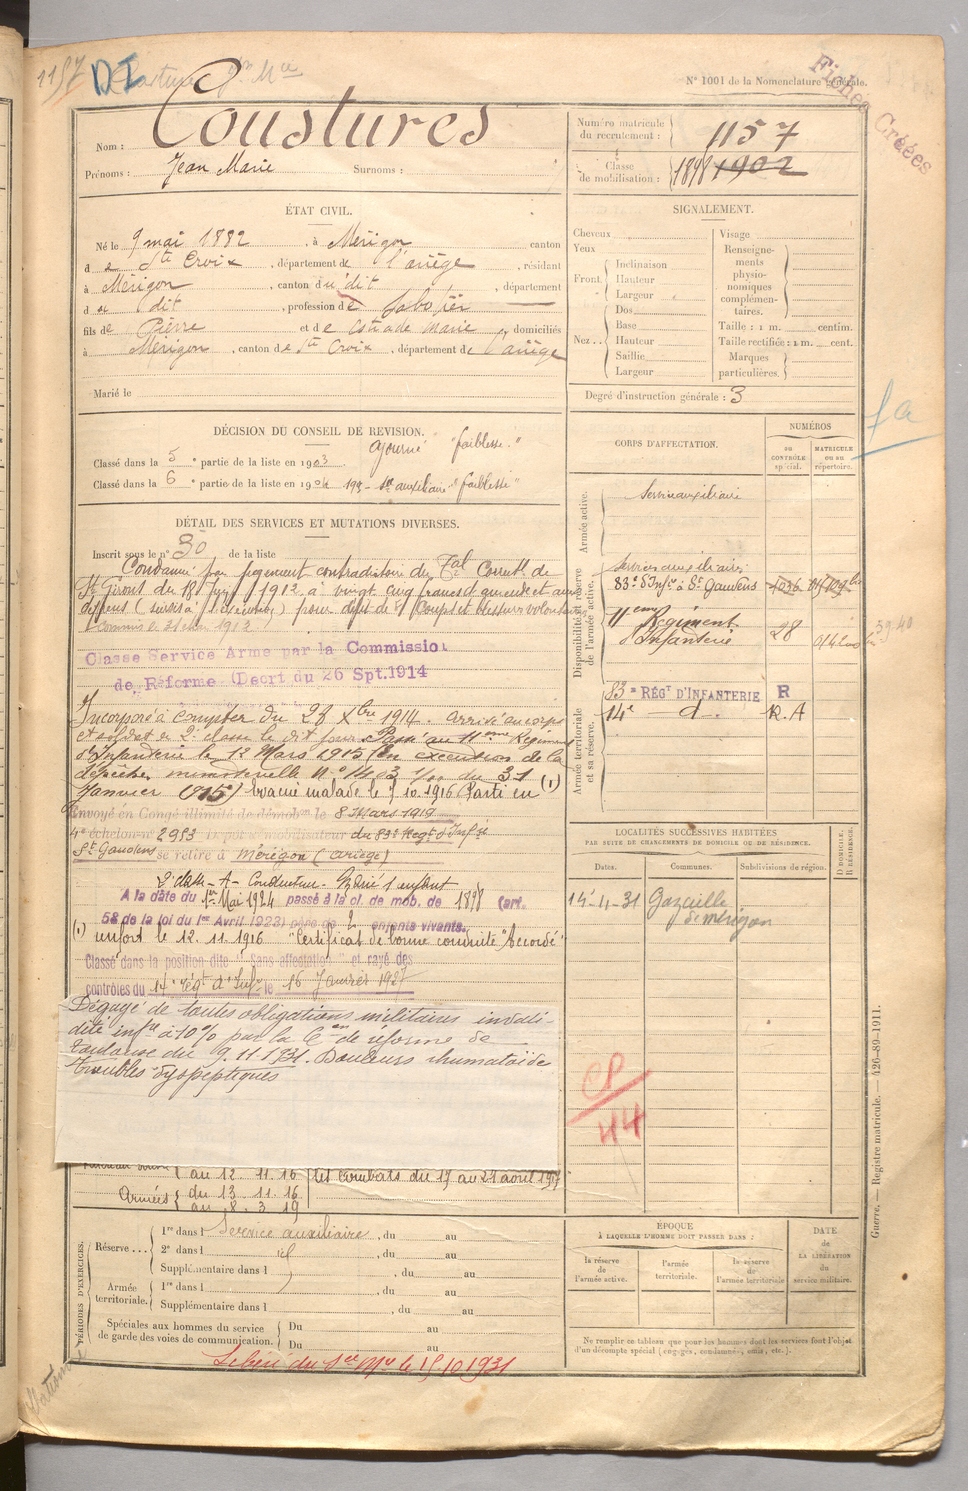 1157 DI
N° 1001 de la Nomenclature générale.
Fiches Créées
Nom : Coustures
Prénoms : Jean Marie Surnoms :
Numéro matricule du recrutement : 1157
Classe de mobilisation : 1898 1902
ÉTAT CIVIL.
Né le 9 mai 1882, à Mérigon canton
de Ste Croix, département de l'ariège, résidant
à Mérigon, canton du dit, département
du dit, profession de Sabotier
fils de Pierre et de Estrade Marie, domiciliés
à Mérigon, canton de Ste Croix, département de l'ariège
Marié le
SIGNALEMENT.
Cheveux
Yeux
Front. Inclinaison
Hauteur
Largeur
Nez.. Dos
Base
Hauteur
Saillie
Largeur
Visage
Renseignements physionomiques complémentaires.
Taille : 1 m. centim.
Taille rectifiée : 1 m. cent.
Marques particulières.
Degré d'instruction générale : 3
1a
DÉCISION DU CONSEIL DE REVISION.
Classé dans la 5e partie de la liste en 1903 ajourné "faiblesse"
Classé dans la 6e partie de la liste en 1904 auxiliaire "faiblesse"
DÉTAIL DES SERVICES ET MUTATIONS DIVERSES.
Inscrit sous le n° 30 de la liste
Condamné par jugement contradictoire du Tal Correctl de
St Girons du 18 1912 à vingt cinq francs d'amende et aux
dépens (sursis à l'exécution) pour délit de Coups et blessures volontaires
commis le 31 1912
Classé Service Armé par la Commission
de Réforme (Decrt du 26 Spt. 1914
Incorporé à compter du 28 Xbre 1914. arrivé au corps
et soldat de 2e classe le dit jour. Passé au 11ème Régiment
d'Infanterie le 12 Mars 1915 (En exécution de la
dépêche ministerielle N° 1403 1/10 du 31
Janvier 1915) Evacué malade le 10.1916 Parti en (1)
Envoyé en Congé illimité de démobon le 8 Mars 1919
4e échelon n° 2953 Dépôt mobilisateur du 83e Régt d'Infie
St Gaudens se retire à Mérigon (ariège)
2e classe A - Conducteur. Marié 1 enfant
A la date du 1er Mai 1924 passé à la cl. de mob. de 1898 (art.
58 de la loi du 1er Avril 1923) père de 2 enfants vivants.
(1) renfort le 12.11.1916 "Certificat de bonne conduite "Accordé"
Classé dans la position dite "Sans affectation" et rayé des
contrôles du 14e régt d'Infie le 16 Janvier 1927
Dégagé de toutes obligations militaires invali-
dité infre à 10% par la Con de réforme de
Toulouse du 9.11.1931. Douleurs rhumatoïdes
troubles dyspeptiques
au 12.11.16 les combats du 17 au 24 aout 1917
Armées du 13.11.16
au 8.3.19
CORPS D'AFFECTATION.
NUMÉROS
DU CONTRÔLE spécial.
MATRICULE OU AU répertoire.
Armée active.
Service auxiliaire
Disponibilité et réserve de l'armée active.
Service auxiliaire
83e d'Infie à St Gaudens
11eme Régiment d'Infanterie 28
Armée territoriale et sa réserve.
83e RÉGT D'INFANTERIE R
14e d°. R.A
LOCALITÉS SUCCESSIVES HABITÉES
PAR SUITE DE CHANGEMENTS DE DOMICILE OU DE RÉSIDENCE.
Dates. Communes. Subdivisions de région. D. DOMICILE. R. RÉSIDENCE.
14-11-31 Gazaille de Mérigon
CP
44
Guerre. — Registre matricule. — 426-89-1911.
PÉRIODES D'EXERCICES.
Réserve ... 1re dans l Service auxiliaire, du au
2e dans l id, du au
Supplémentaire dans l, du au
Armée territoriale. 1re dans l, du au
Supplémentaire dans l, du au
Spéciales aux hommes du service de garde des voies de communication. Du au
Du au
Libéré du Sce Mre le 15 10 1931
ÉPOQUE
À LAQUELLE L'HOMME DOIT PASSER DANS :
la réserve de l'armée active.
l'armée territoriale.
la réserve de l'armée territoriale
DATE de LA LIBÉRATION du service militaire.
Ne remplir ce tableau que pour les hommes dont les services font l'objet
d'un décompte spécial (engagés, condamnés, omis, etc.).